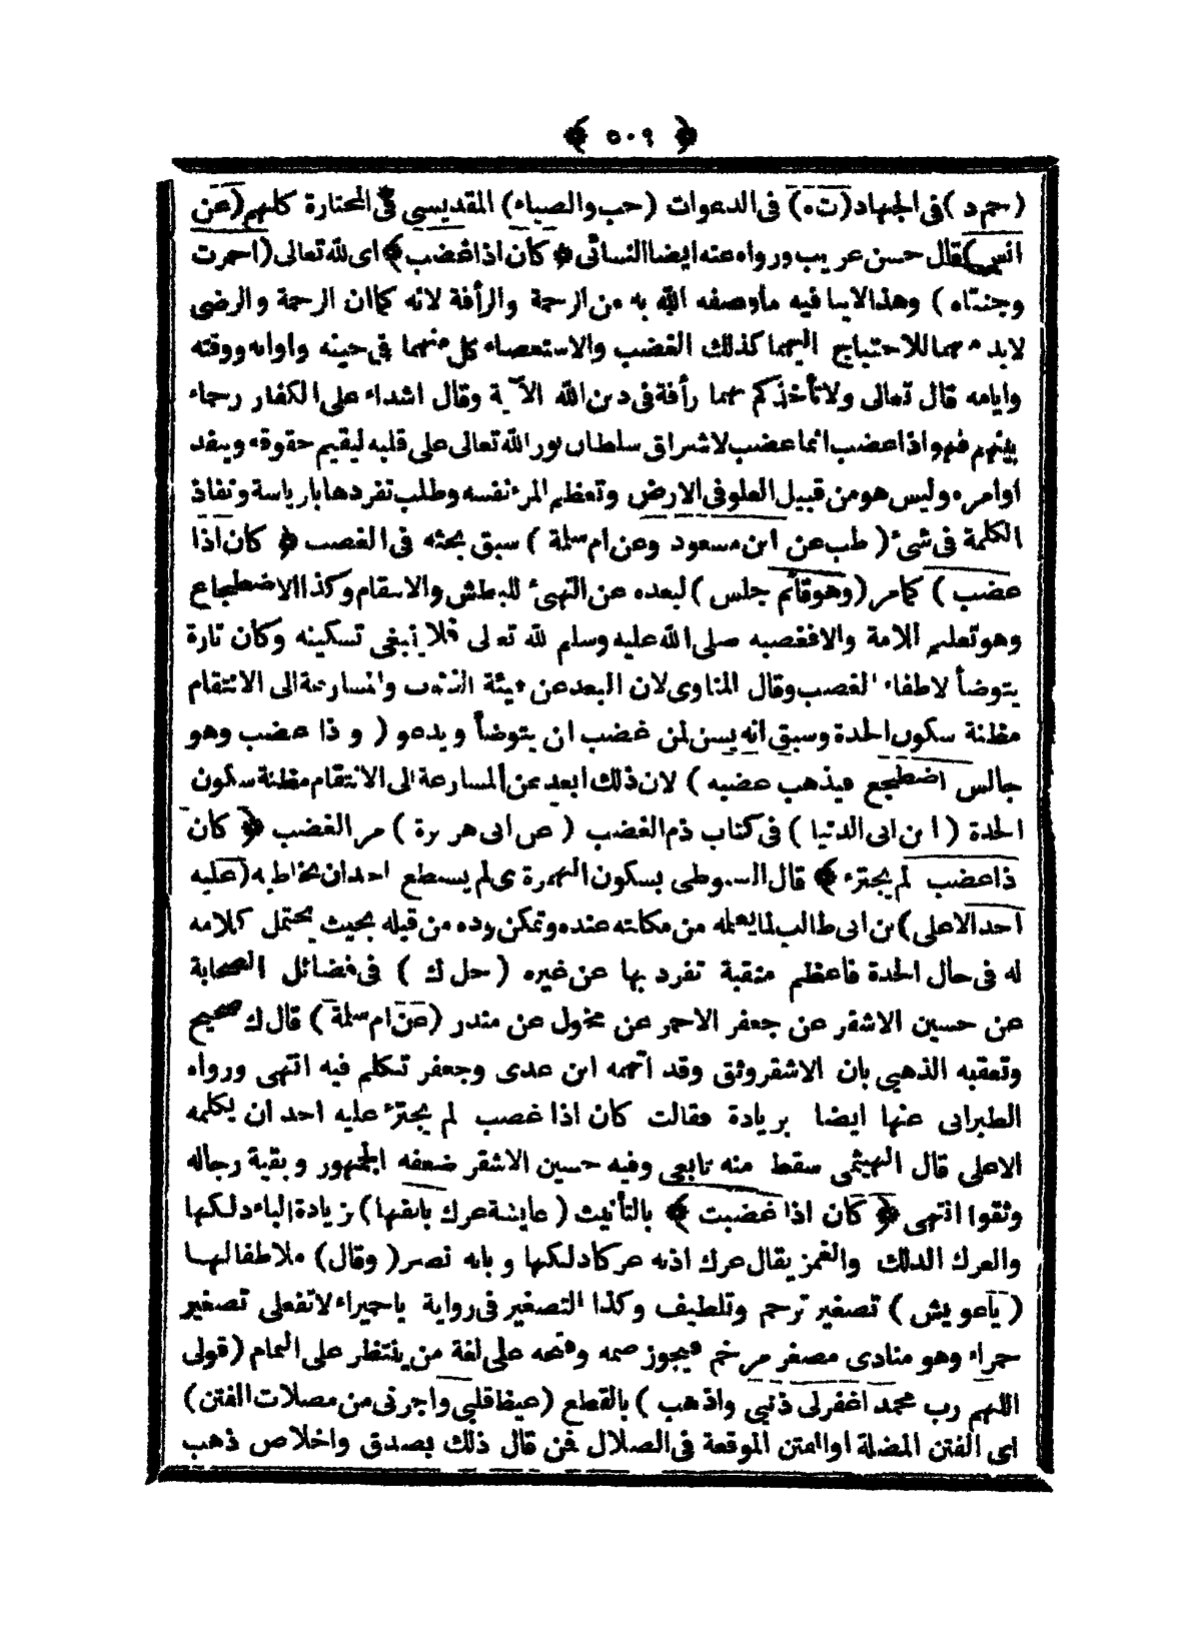 ﴿ ٥٠٩ ﴾
(حم د) فى الجهاد (ت ه) فى الدعوات (حب والضياء) المقدسى فى المختارة كلهم (عن
انس) قال حسن غريب ورواه عنه ايضا النسائى ﴿ كان اذا غضب ﴾ اى لله تعالى (احمرت
وجنتاه) وهذا لا ينافيه ماوصفه الله به من الرحمة والرأفة لانه كما ان الرحمة والرضى
لابد منهما للاحتياج اليهما كذلك الغضب والاستعصاء كل منهما فى حينه واوانه ووقته
وايامه قال تعالى ولا تأخذكم بهما رأفة فى دين الله الآية وقال اشداء على الكفار رحماء
بينهم فهو اذا غضب انما غضب لاشراق سلطان نور الله تعالى على قلبه ليقيم حقوقه وينفذ
اوامره وليس هو من قبيل العلو فى الارض وتعظيم المرء نفسه وطلب تفردها بارياسة ونفاذ
الكلمة فى شئ (طب عن ابن مسعود وعن ام سلمة) سبق بحثه فى الغضب ﴿ كان اذا
غضب) كمامر (وهو قائم جلس) لبعده عن التهئ للبطش والانتقام وكذا الاضطجاع
وهو تعليم الامة والافغضبه صلى الله عليه وسلم لله تعالى فلا ينبغى تسكينه وكان تارة
يتوضأ لاطفاء الغضب وقال المناوى لان البعد عن هيئة الوثوب والمسارعة الى الانتقام
مظنة سكون الحدة وسبق انه يسن لمن غضب ان يتوضأ ويدعو (و ذا غضب وهو
جالس اضطجع فيذهب غضبه) لان ذلك ابعد عن المسارعة الى الانتقام مظنة سكون
الحدة (ابن ابى الدنيا) فى كتاب ذم الغضب (عن ابى هريرة) مر الغضب ﴿ كان
ذا غضب لم يجترء ﴾ قال السيوطى بسكون الهمزة اى لم يسطع احد ان يخاطبه (عليه
احد الا على) بن ابى طالب لما يعلمه من مكانته عنده وتمكن وده من قبله بحيث يحتمل كلامه
له فى حال الحدة فاعظم منقبة تفرد بها عن غيره (حل ك) فى فضائل الصحابة
عن حسين الاشقر عن جعفر الاحمر عن مخول عن منذر (عن ام سلمة) قال ك صحيح
وتعقبه الذهبى بان الاشقر وثق وقد اتهمه ابن عدى وجعفر تكلم فيه انتهى ورواه
الطبرانى عنها ايضا بزيادة فقالت كان اذا غضب لم يجترء عليه احد ان يكلمه
الاعلى قال الهيثمى سقط منه تابعى وفيه حسين الاشقر ضعفه الجمهور وبقية رجاله
وثقوا انتهى ﴿ كان اذا غضبت ﴾ بالتأنيث (عايشة عرك بانفها) بزيادة الباء دلكها
والعرك الدلك والغمز يقال عرك اذنه عركا دلكها وبابه نصر (وقال) ملاطفا لها
(ياعويش) تصغير ترحم وتلطيف وكذا التصغير فى رواية ياحميراء لاتفعلى تصغير
حمراء وهو منادى مصغر مرخم فيجوز ضمه وفتحه على لغة من ينتظر على التمام (قولى
اللهم رب محمد اغفرلى ذنبى واذهب) بالقطع (غيظ قلبى واجرنى من مضلات الفتن)
اى الفتن المضلة او الفتن الموقعة فى الضلال فمن قال ذلك بصدق واخلاص ذهب